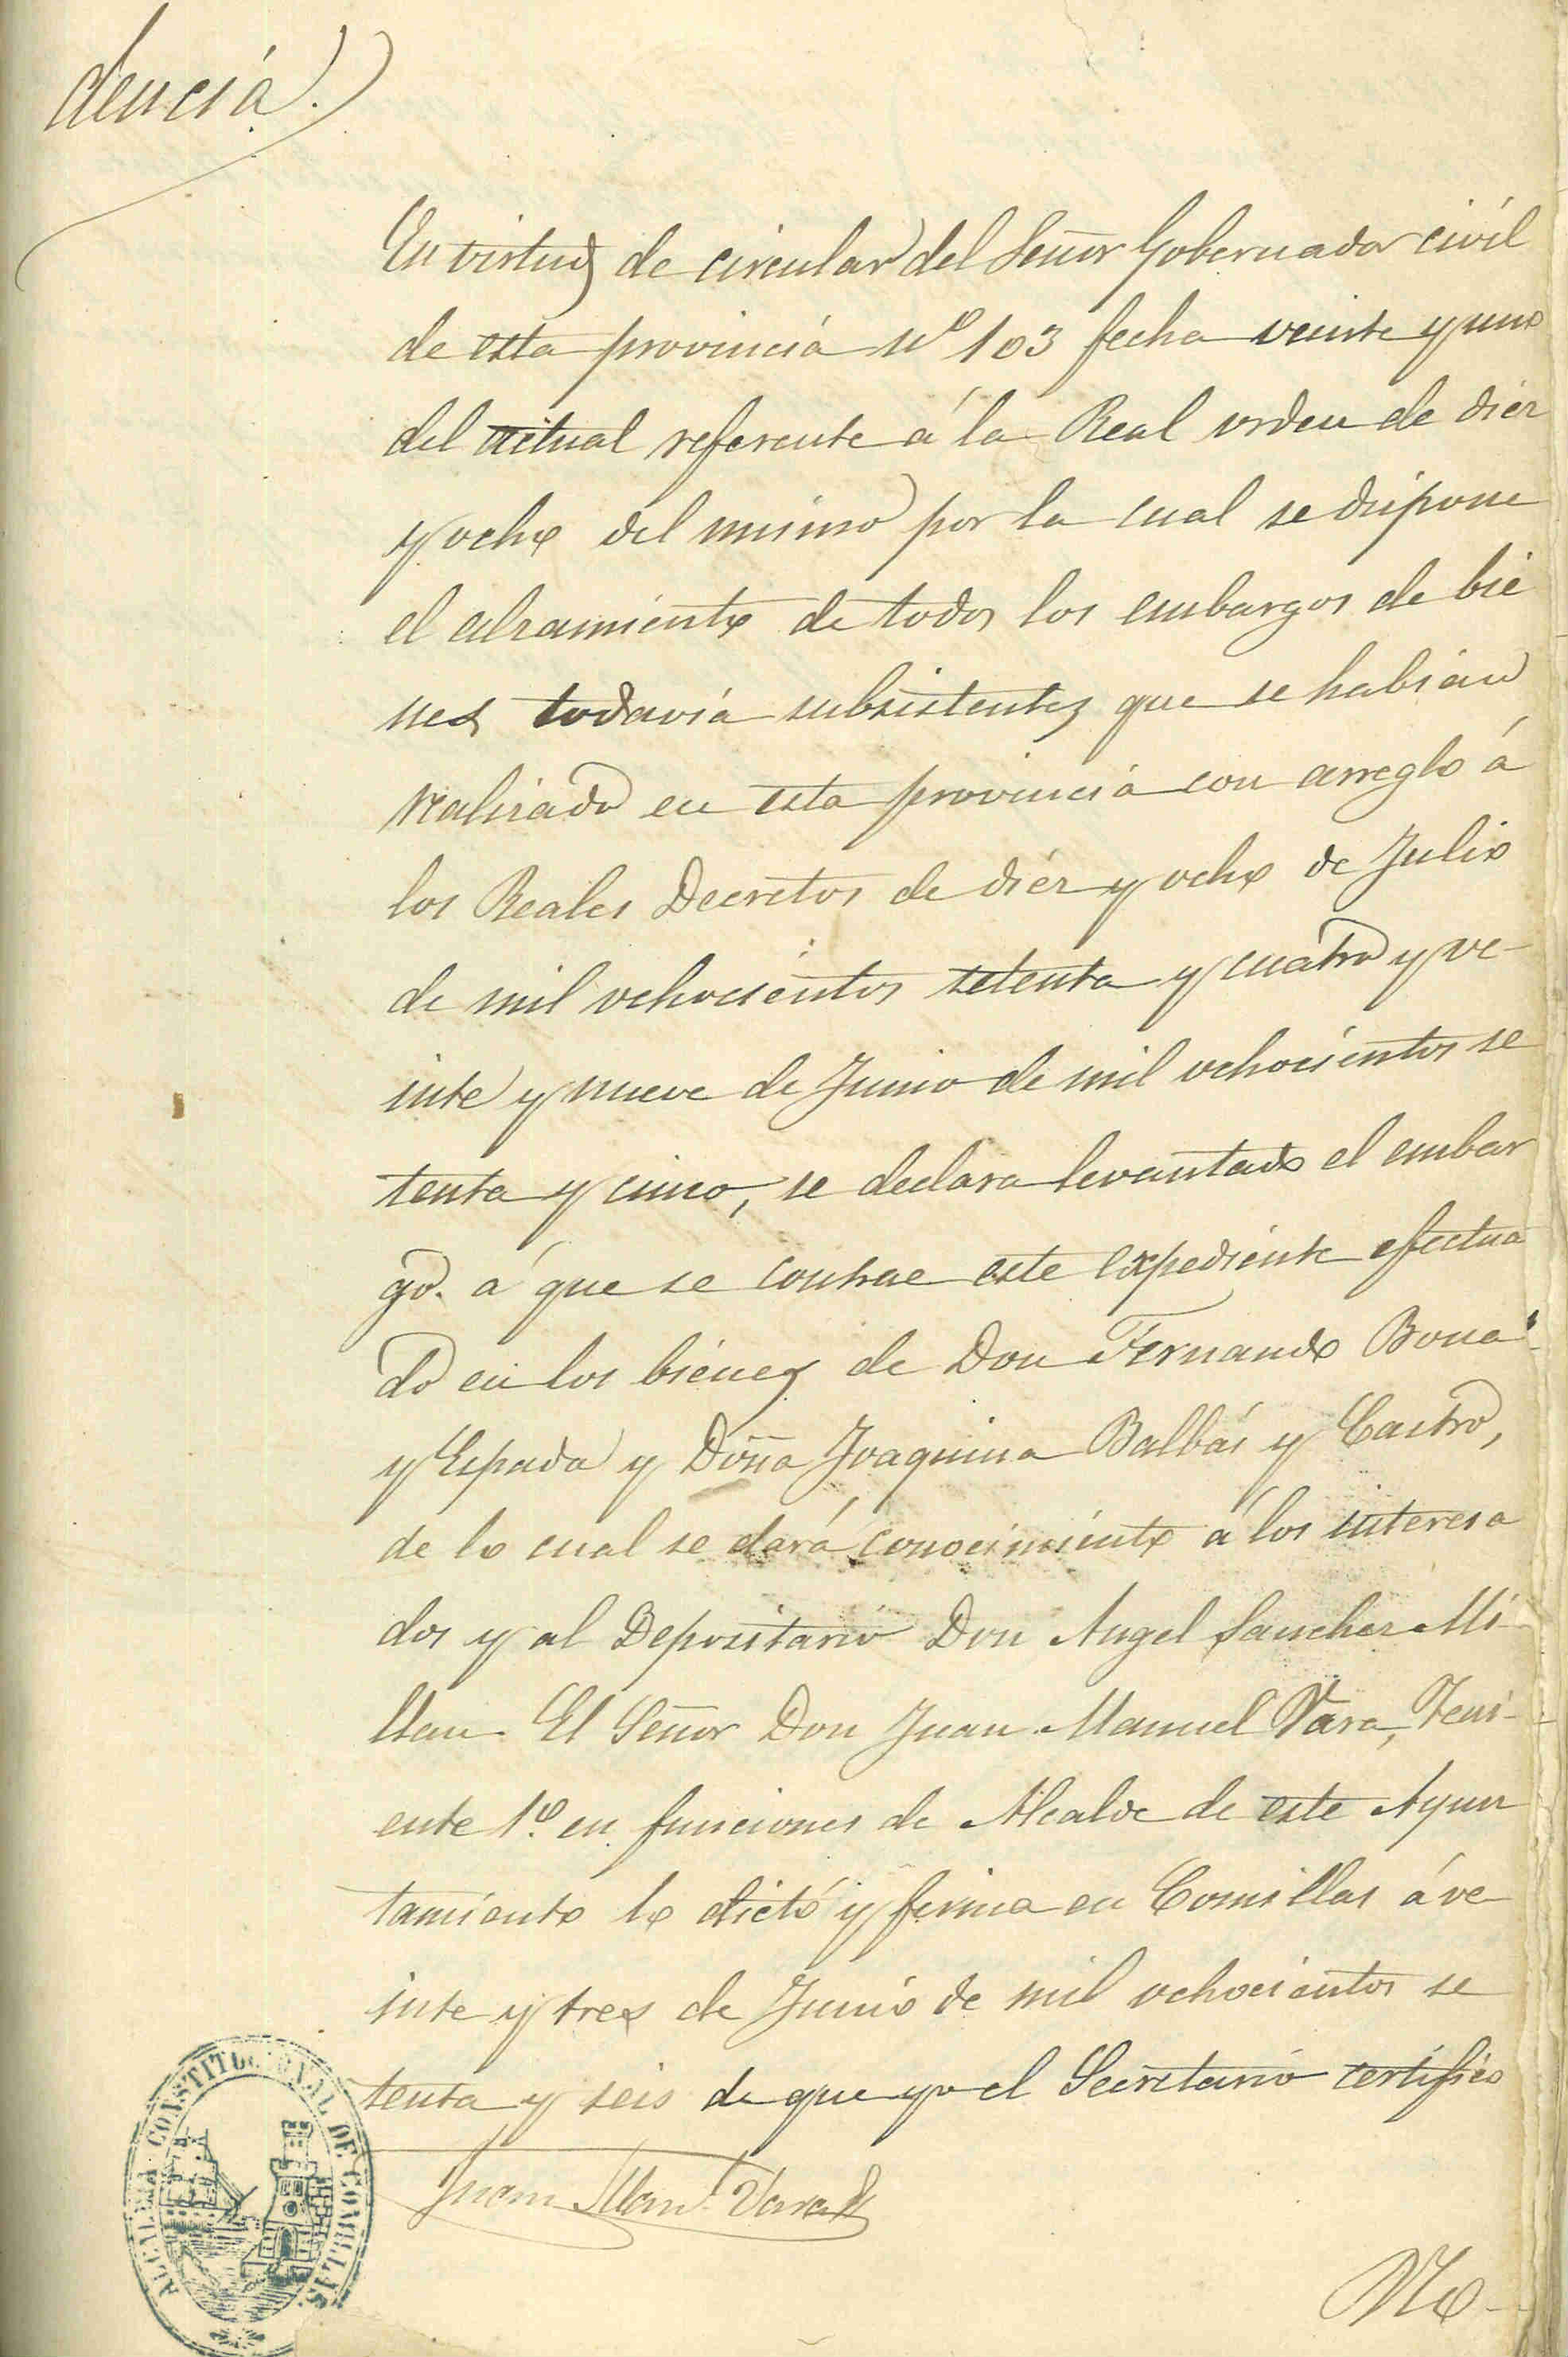 dencia.)
En virtud de circular del Señor Gobernador civil
de esta provincia nº 103 fecha veinte y uno
del actual referente á la Real orden de diez
y ocho del mismo por la cual se dispone
el alzamiento de todos los embargos de bie
nes todavia subsistentes que se habian
realizado en esta provincia con arreglo á
los Reales Decretos de diez y ocho de Julio
de mil ochocientos setenta y cuatro y ve-
inte y nueve de Junio de mil ochocientos se
tenta y cinco, se declara levantado el embar
go. á que se contrae este expediente efectua
do en los bienes de Don Fernando Bona
y Espada y Doña Joaquina Balbás y Castro,
de lo cual se dará conocimiento á los interesa
dos y al Depositario Don Angel Sanchez Mi-
llan. El Señor Don Juan Manuel Vara, Teni-
ente 1º. en funciones de Alcalde de este Ayun
tamiento lo dictó y firma en Comillas á ve-
inte y tres de Junio de mil ochocientos se
tenta y seis de que yo el Secretario certifico
Juan Manl. Vara
ALCALDIA CONSTITUCIONAL DE COMILLAS